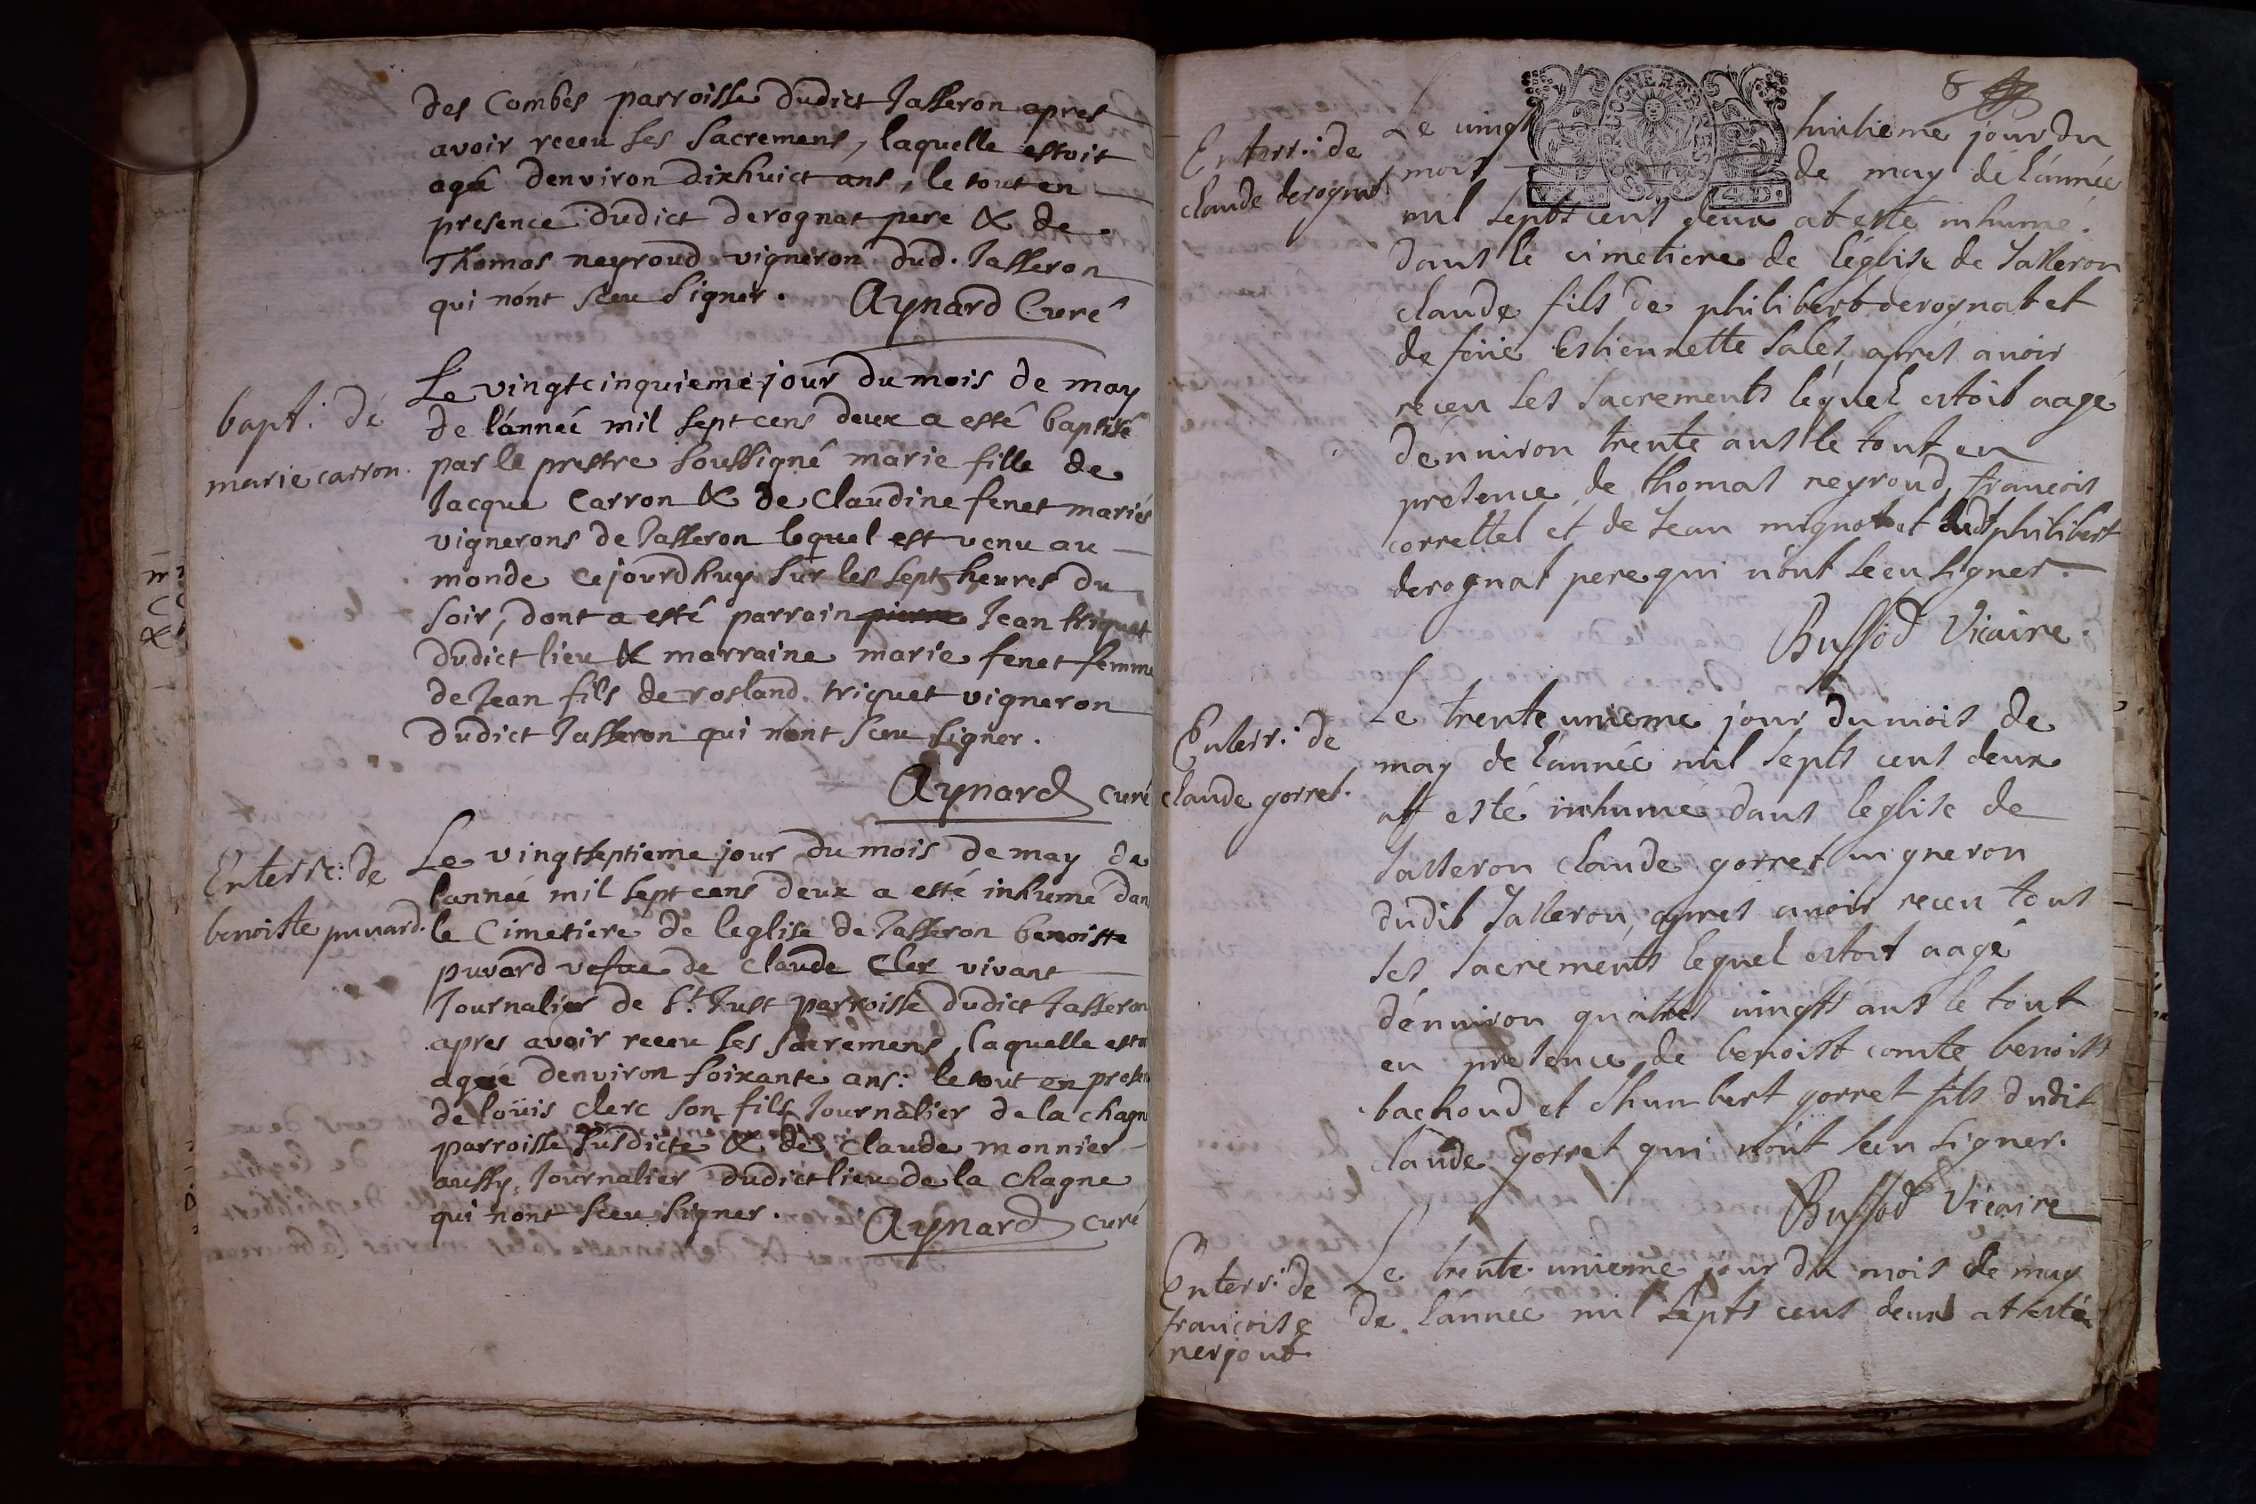 des Combes parroisse dudict Jasseron apres
avoir receu les sacremens, laquelle estoit
agée denviron dixhuict ans, le tout en
presence dudict derognat pere & de
Thomas neyroud vigneron dud. Jasseron
qui nont sceu signer. Aynard Curé
bapt. de
marie carron.
Le vingtcinquieme jour du mois de may
de lánneé mil sept cens deux a esté baptisé
par le prestre soussigné marie fille de
Jacque Carron & de Claudine fenet mariés
vignerons de Jasseron lequel est venu au
monde cejourdhuy sur les sept heures du
soir, dont a esté parrain pierre Jean triquet
dudict lieu & marraine marie fenet femme
de Jean fils de rosland triquet vigneron
dudict Jasseron qui nont sceu signer.
Aynard curé
Enterre: de
benoiste puvard.
Le vingtseptieme jour du mois de may de
lanneé mil sept cens deux a esté inhumé dan
le Cimetiere de leglise de Jasseron benoiste
puvard vefue de claude Cler vivant
Journalier de St. Just parroisse dudict Jasseron
apres avoir receu les sacremens, laquelle esto
ageé denviron soixante ans: le tout en presen
de loüis clerc son fils Journalier de la chagn
parroisse susdicte & de claude monnier
aussy Journalier dudict lieu de la chagne
qui nont sceu signer. Aynard curé
8
Enterr. de
claude derognat
Le vingt huitieme jour du
mois de may de l'année
mil septs cens deux at esté inhumé
dans le cimetiere de léglise de Jasseron
claude fils de philibert derognat et
de feüe Estiennette sales apres auoir
receu les sacrements lequel estoit aagé
dénuiron trente ans le tout en
presence de thomas neyroud, francois
correttel et de Jean mignot et dudt philibert
derognat pere qui n'ont sceu signer.
Bussod Vicaire.
Enterr. de
claude gorret.
Le trente unieme jour du mois de
may de l'année mil septs cens deux
at esté inhumé dans leglise de
Jasseron claude gorret uigneron
dudit Jasseron, apres auoir receu tous
ses sacrements lequel estoit aagé
dénuiron quatres uingts ans le tout
en presence de benoist comte benoist
bachoud et d'humbert gorret fils dudit
claude gorret qui n'ont sceu signer.
Bussod Vicaire
Enterr. de
francoise
nerjoud
Le trente unieme jour du mois de may
de l'année mil septs cens deux at esté